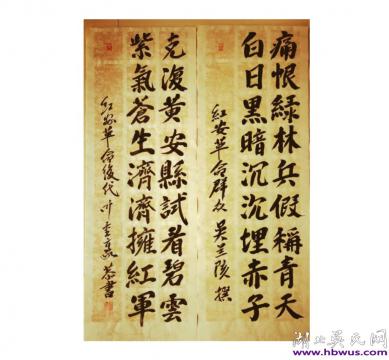 痛恨綠林兵假稱青天
白日黑暗沉沉埋赤子
紅安革命群众吴兰陔撰
克復黄安縣試看碧雲
紫氣蒼生濟濟擁紅軍
紅安革命後代叶
恭書
湖北吴氏网
www.hbwus.com